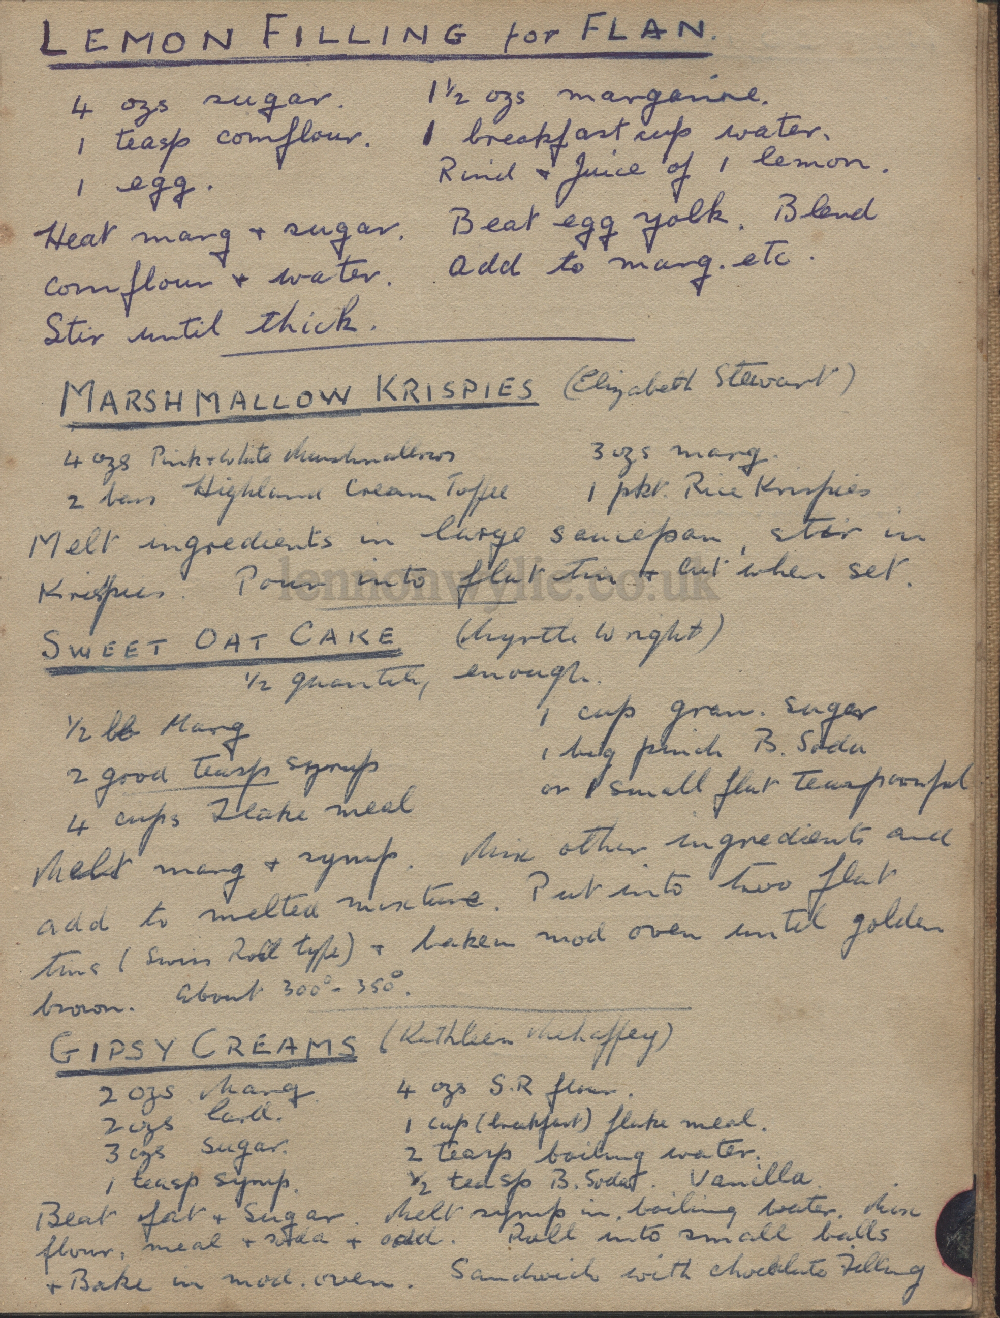 LEMON FILLING for FLAN.
4 ozs sugar. 1½ ozs margarine.
1 teasp cornflour. 1 breakfast cup water.
1 egg. Rind + Juice of 1 lemon.
Heat marg + sugar. Beat egg yolk. Blend
cornflour + water. Add to marg. etc.
Stir until thick.
MARSHMALLOW KRISPIES (Elizabeth Stewart)
4 ozs Pink + White Marshmallows 3 ozs marg.
2 bars Highland Cream Toffee 1 pkt. Rice Krispies
Melt ingredients in large saucepan, stir in
Krispies. Pour into flat tin + cut when set.
lennonwylie.co.uk
SWEET OAT CAKE (Myrtle Wright)
½ quantity enough.
½ lb Marg 1 cup gran. sugar
2 good teasp syrup 1 big pinch B. Soda
4 cups Flake meal or 1 small flat teaspoonful
Melt marg + syrup. Mix other ingredients and
add to melted mixture. Put into two flat
tins (Swiss Roll type) + bake in mod oven until golden
brown. About 300° - 350°.
GIPSY CREAMS (Kathleen Mehaffey)
2 ozs Marg 4 ozs S.R flour.
2 ozs Lard. 1 cup (breakfast) flake meal.
3 ozs sugar. 2 teasp boiling water.
1 teasp syrup. ½ teasp B. Soda. Vanilla
Beat fat + sugar. Melt syrup in boiling water. Mix
flour, meal + soda + add. Roll into small balls
+ Bake in mod. oven. Sandwich with chocolate Filling